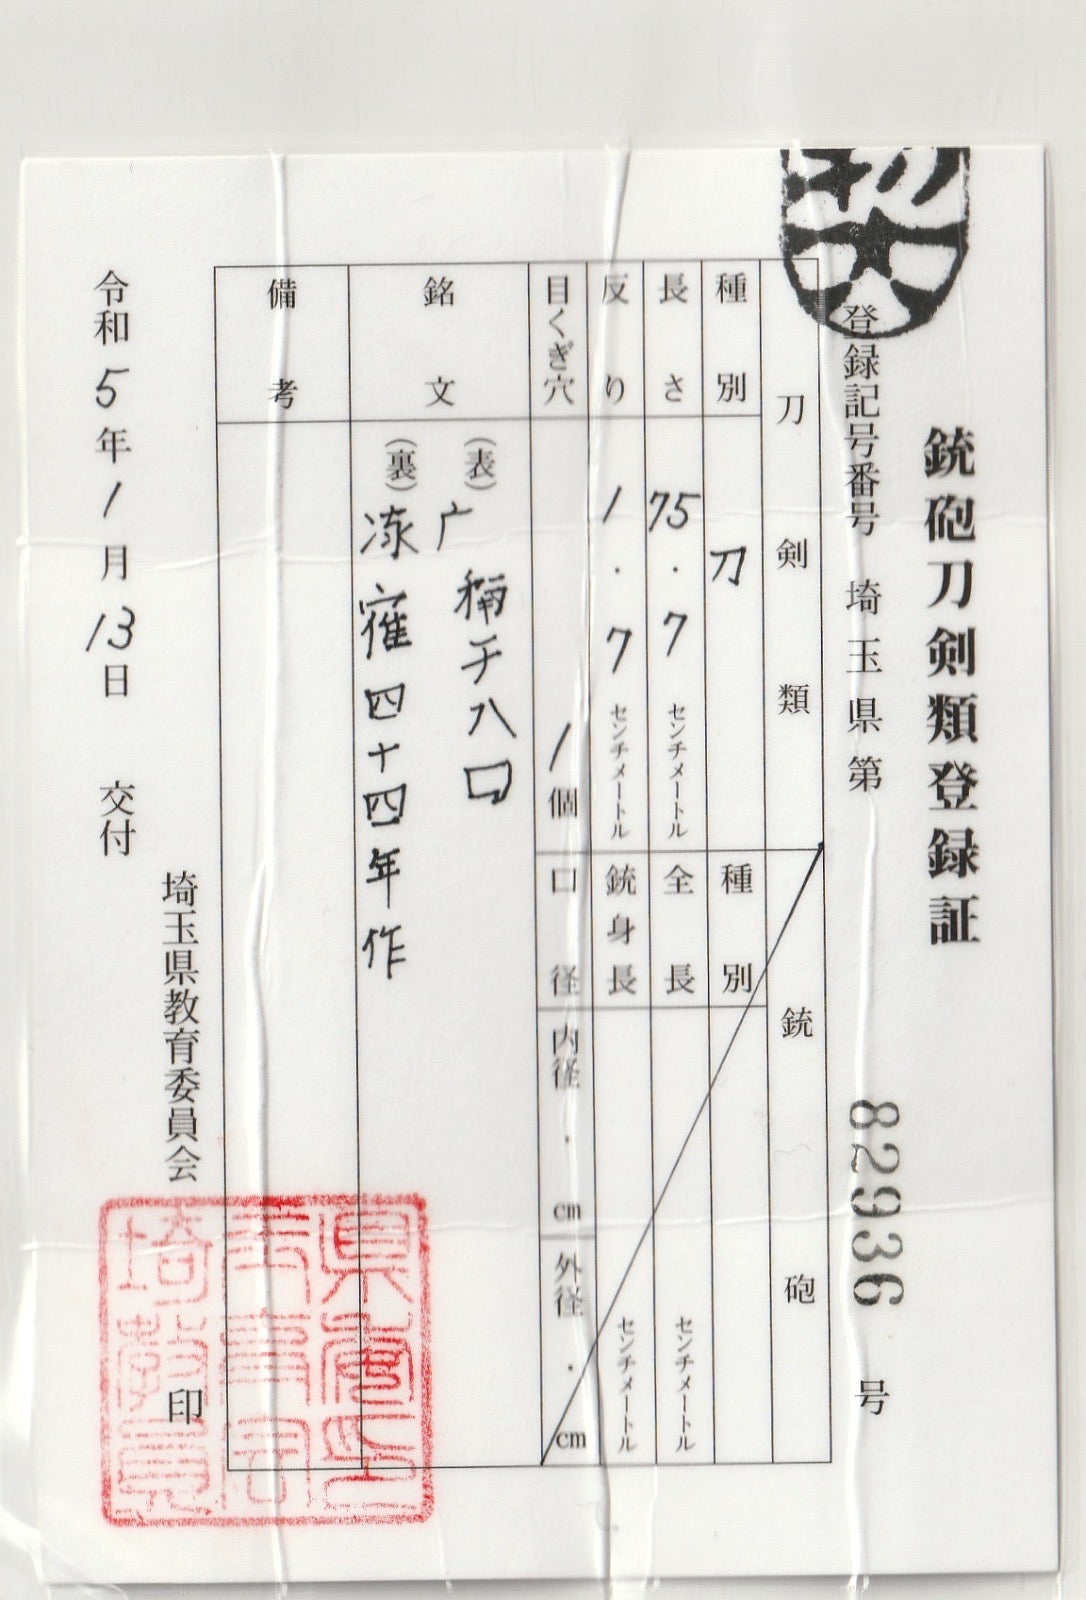 銃砲刀剣類登録証
登録記号番号 埼玉県第 82936 号
刀剣類
銃砲
種別 刀
長さ 75.7 センチメートル
反り 1.7 センチメートル
目くぎ穴 1個
種別
全長 センチメートル
銃身長 センチメートル
口径 内径 . cm 外径 . cm
銘文
(表) 广 稱 于 八 口
(裏) 四十四年作
備考
埼玉県教育委員会 印
令和5年1月13日 交付